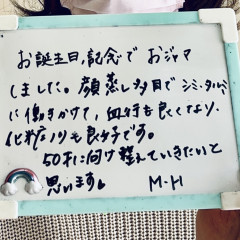 お誕生日記念で おジャマ
しました。顔蒸し4回目でシミ・タルミ
に働きかけて、血行も良くなり、
化粧ノリも良好です。
50才に向け整えていきたいと
思います。 M・H